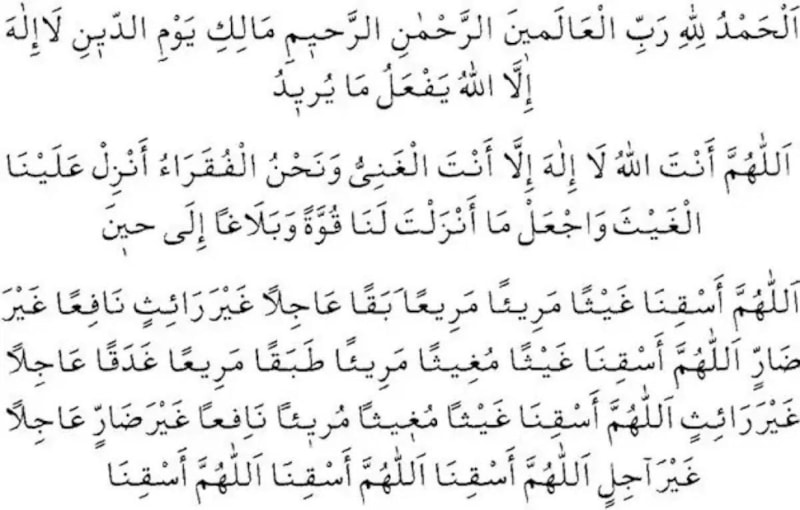 اَلْحَمْدُ لِلّٰهِ رَبِّ الْعَالَمينَ الرَّحْمٰنِ الرَّحيمِ مَالِكِ يَوْمِ الدّينِ لَا إِلٰهَ
إِلَّا اللّٰهُ يَفْعَلُ مَا يُريدُ
اَللّٰهُمَّ أَنْتَ اللّٰهُ لَا إِلٰهَ إِلَّا أَنْتَ الْغَنِىُّ وَنَحْنُ الْفُقَرَاءُ أَنْزِلْ عَلَيْنَا
الْغَيْثَ وَاجْعَلْ مَا أَنْزَلْتَ لَنَا قُوَّةً وَبَلَاغًا إِلَى حينَ
اَللّٰهُمَّ أَسْقِنَا غَيْثًا مَرِيئًا مَرِيعًا َبَقًا عَاجِلًا غَيْرَ رَائِثٍ نَافِعًا غَيْرَ
ضَارٍّ اَللّٰهُمَّ أَسْقِنَا غَيْثًا مُغِيثًا مَرِيئًا طَبَقًا مَرِيعًا غَدَقًا عَاجِلًا
غَيْرَ رَائِثٍ اَللّٰهُمَّ أَسْقِنَا غَيْثًا مُغيثًا مُريئًا نَافِعًا غَيْرَ ضَارٍّ عَاجِلًا
غَيْرَ آجِلٍ اَللّٰهُمَّ أَسْقِنَا اَللّٰهُمَّ أَسْقِنَا اَللّٰهُمَّ أَسْقِنَا